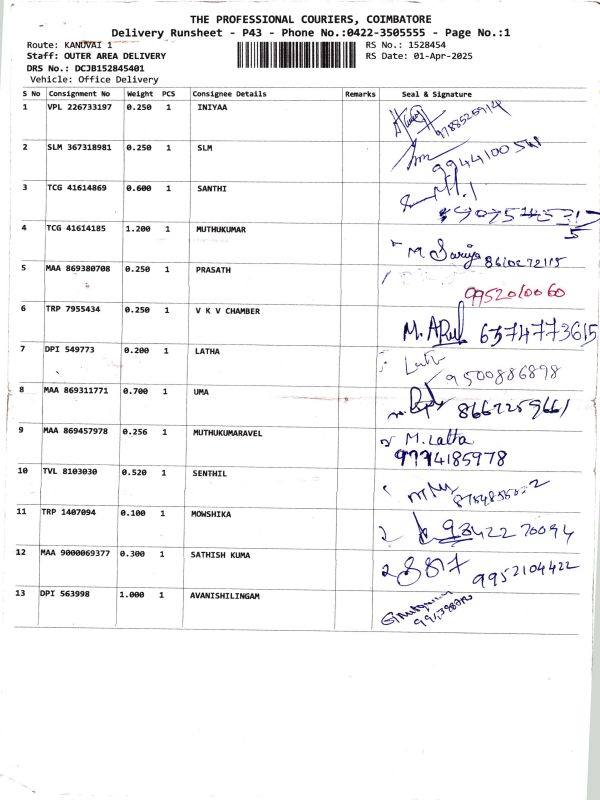 THE PROFESSIONAL COURIERS, COIMBATORE
Delivery Runsheet - P43 - Phone No.:0422-3505555 - Page No.:1
Route: KANUVAI 1 RS No.: 1528454
Staff: OUTER AREA DELIVERY RS Date: 01-Apr-2025
DRS No.: DCJB152845401
Vehicle: Office Delivery
S No Consignment No Weight PCS Consignee Details Remarks Seal & Signature
1 VPL 226733197 0.250 1 INIYAA
2 SLM 367318981 0.250 1 SLM
3 TCG 41614869 0.600 1 SANTHI
4 TCG 41614185 1.200 1 MUTHUKUMAR
M
5 MAA 869380708 0.250 1 PRASATH
9952010060
6 TRP 7955434 0.250 1 V K V CHAMBER
M.
7 DPI 549773 0.200 1 LATHA
9500886898
8 MAA 869311771 0.700 1 UMA
9 MAA 869457978 0.256 1 MUTHUKUMARAVEL
M. Latha
10 TVL 8103030 0.520 1 SENTHIL
11 TRP 1407094 0.100 1 MOWSHIKA
9842270094
12 MAA 9000069377 0.300 1 SATHISH KUMA
9952104422
13 DPI 563998 1.000 1 AVANISHILINGAM